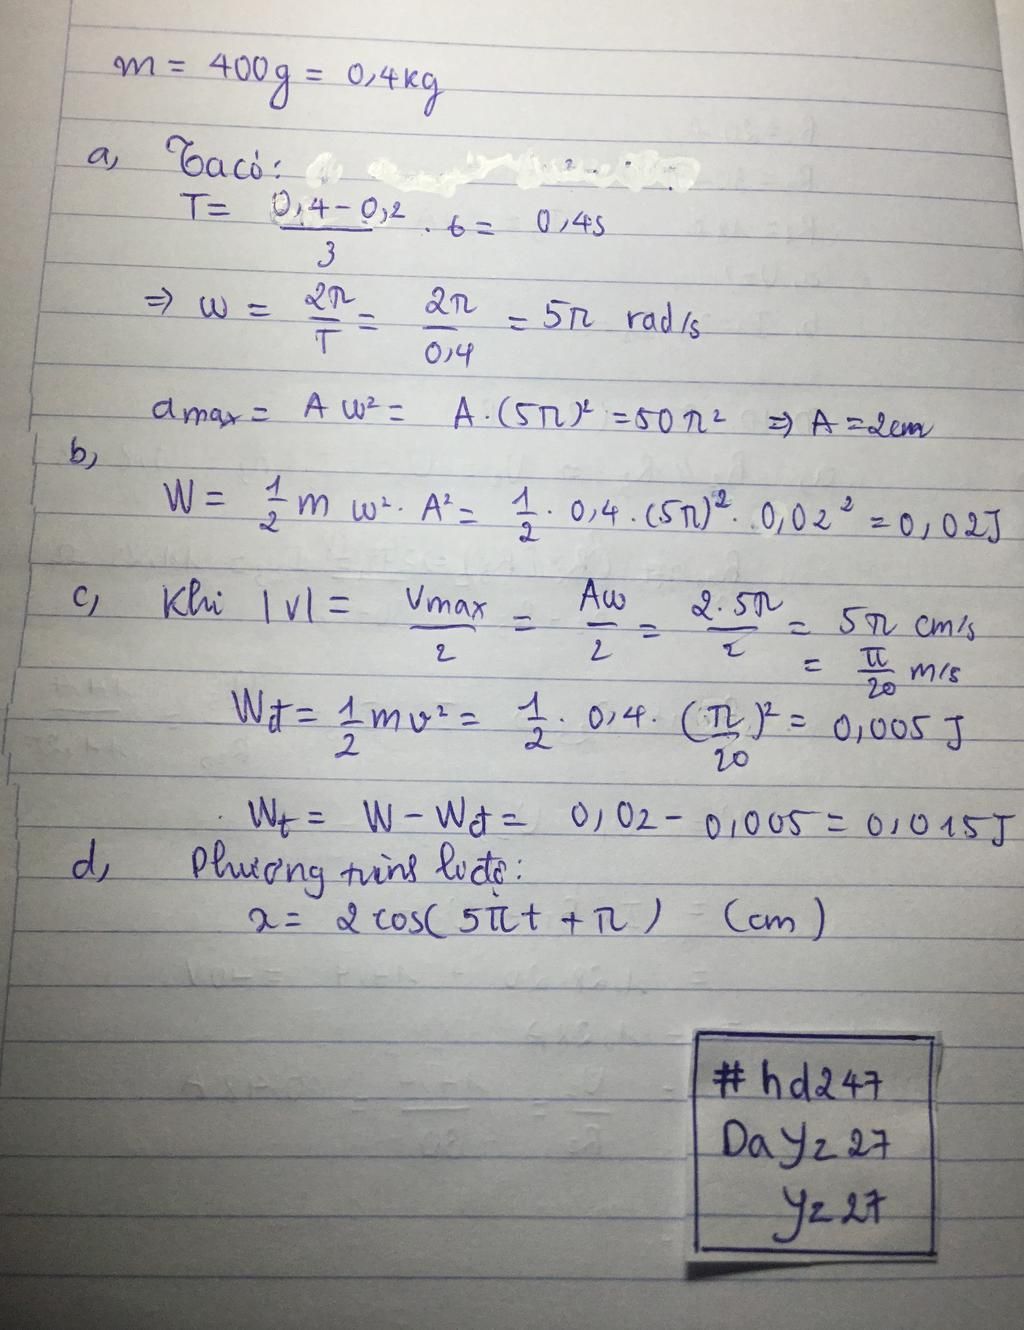 m = 400g = 0,4kg
a, Ta có:
T = (0,4 - 0,2)/3 . 6 = 0,4s
=> ω = 2π/T = 2π/0,4 = 5π rad/s
amax = A ω² = A.(5π)² = 50π² => A = 2cm
b,
W = 1/2 m ω². A² = 1/2 . 0,4. (5π)². 0,02² = 0,02J
c, Khi |v| = Vmax/2 = Aω/2 = 2.5π/2 = 5π cm/s
= π/20 m/s
Wđ = 1/2 mv² = 1/2 . 0,4. (π/20)² = 0,005 J
Wt = W - Wđ = 0,02 - 0,005 = 0,015J
d, Phương trình li độ:
x = 2 cos( 5πt + π) (cm)
# hd247
Da Yz 27
Yz 27